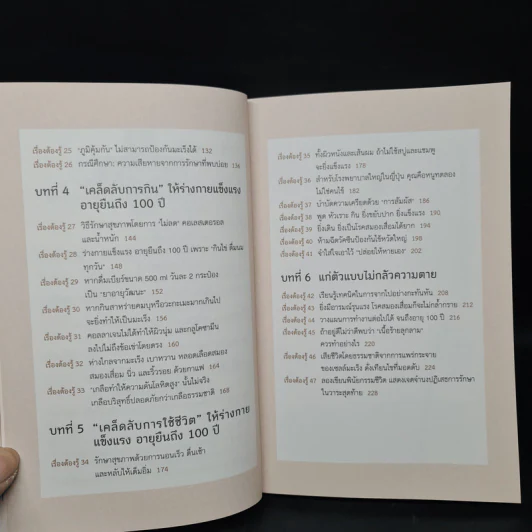 เรื่องต้องรู้ 25 "ภูมิคุ้มกัน" ไม่สามารถป้องกันมะเร็งได้ 132
เรื่องต้องรู้ 26 กรณีศึกษา: ความเสียหายจากการรักษาที่พบบ่อย 136
บทที่ 4 "เคล็ดลับการกิน" ให้ร่างกายแข็งแรง
อายุยืนถึง 100 ปี
เรื่องต้องรู้ 27 วิธีรักษาสุขภาพโดยการ "ไม่ลด" คอเลสเตอรอล
และน้ำหนัก 144
เรื่องต้องรู้ 28 ร่างกายแข็งแรง อายุยืนถึง 100 ปี เพราะ "กินไข่ ดื่มนม
ทุกวัน" 148
เรื่องต้องรู้ 29 หากดื่มเบียร์ขนาด 500 ml วันละ 2 กระป๋อง
เป็น "ยาอายุวัฒนะ" 152
เรื่องต้องรู้ 30 หากกินสาหร่ายคมบุหรือวะกะเมะมากเกินไป
จะยิ่งทำให้เป็นมะเร็ง 156
เรื่องต้องรู้ 31 คอลลาเจนไม่ได้ทำให้ผิวนุ่ม และกลูโคซามีน
ลงไปไม่ถึงข้อเข่าโดยตรง 160
เรื่องต้องรู้ 32 ห่างไกลจากมะเร็ง เบาหวาน หลอดเลือดสมอง
สมองเสื่อม นิ่ว และริ้วรอย ด้วยกาแฟ 164
เรื่องต้องรู้ 33 "เกลือทำให้ความดันโลหิตสูง" นั้นไม่จริง
เกลือบริสุทธิ์ปลอดภัยกว่าเกลือธรรมชาติ 168
บทที่ 5 "เคล็ดลับการใช้ชีวิต" ให้ร่างกาย
แข็งแรง อายุยืนถึง 100 ปี
เรื่องต้องรู้ 34 รักษาสุขภาพด้วยการนอนเร็ว ตื่นเช้า
และหลับให้เต็มอิ่ม 174
เรื่องต้องรู้ 35 ทั้งผิวหนังและเส้นผม ถ้าไม่ใช้สบู่และแชมพู
จะยิ่งแข็งแรง 178
เรื่องต้องรู้ 36 สำหรับโรงพยาบาลใหญ่ในญี่ปุ่น คุณคือหนูทดลอง
ไม่ใช่คนไข้ 182
เรื่องต้องรู้ 37 บำบัดความเครียดด้วย "การสัมผัส" 186
เรื่องต้องรู้ 38 พูด หัวเราะ กิน ยิ่งขยับปาก ยิ่งแข็งแรง 192
เรื่องต้องรู้ 39 ยิ่งเดิน ยิ่งเป็นโรคสมองเสื่อมได้ยาก 194
เรื่องต้องรู้ 40 ห้ามฉีดวัคซีนป้องกันไข้หวัดใหญ่ 198
เรื่องต้องรู้ 41 จำใส่ใจเอาไว้ "ปล่อยให้หายเอง" 202
บทที่ 6 แก่ตัวแบบไม่กลัวความตาย
เรื่องต้องรู้ 42 เรียนรู้เทคนิคในการจากไปอย่างกะทันหัน 208
เรื่องต้องรู้ 43 ยิ่งมีอารมณ์รุนแรง โรคสมองเสื่อมก็จะไม่กล้ำกราย 212
เรื่องต้องรู้ 44 วางแผนการทำงานต่อไปได้ จนถึงอายุ 100 ปี 216
เรื่องต้องรู้ 45 ถ้าอยู่ดีไม่ว่าดีพบว่า "เนื้อร้ายลุกลาม"
ควรทำอย่างไร 220
เรื่องต้องรู้ 46 เสียชีวิตโดยธรรมชาติจากการแพร่กระจาย
ของเซลล์มะเร็ง ดังเทียนไขที่มอดดับ 224
เรื่องต้องรู้ 47 ลองเขียนพินัยกรรมชีวิต แสดงเจตจำนงปฏิเสธการรักษา
ในวาระสุดท้าย 228